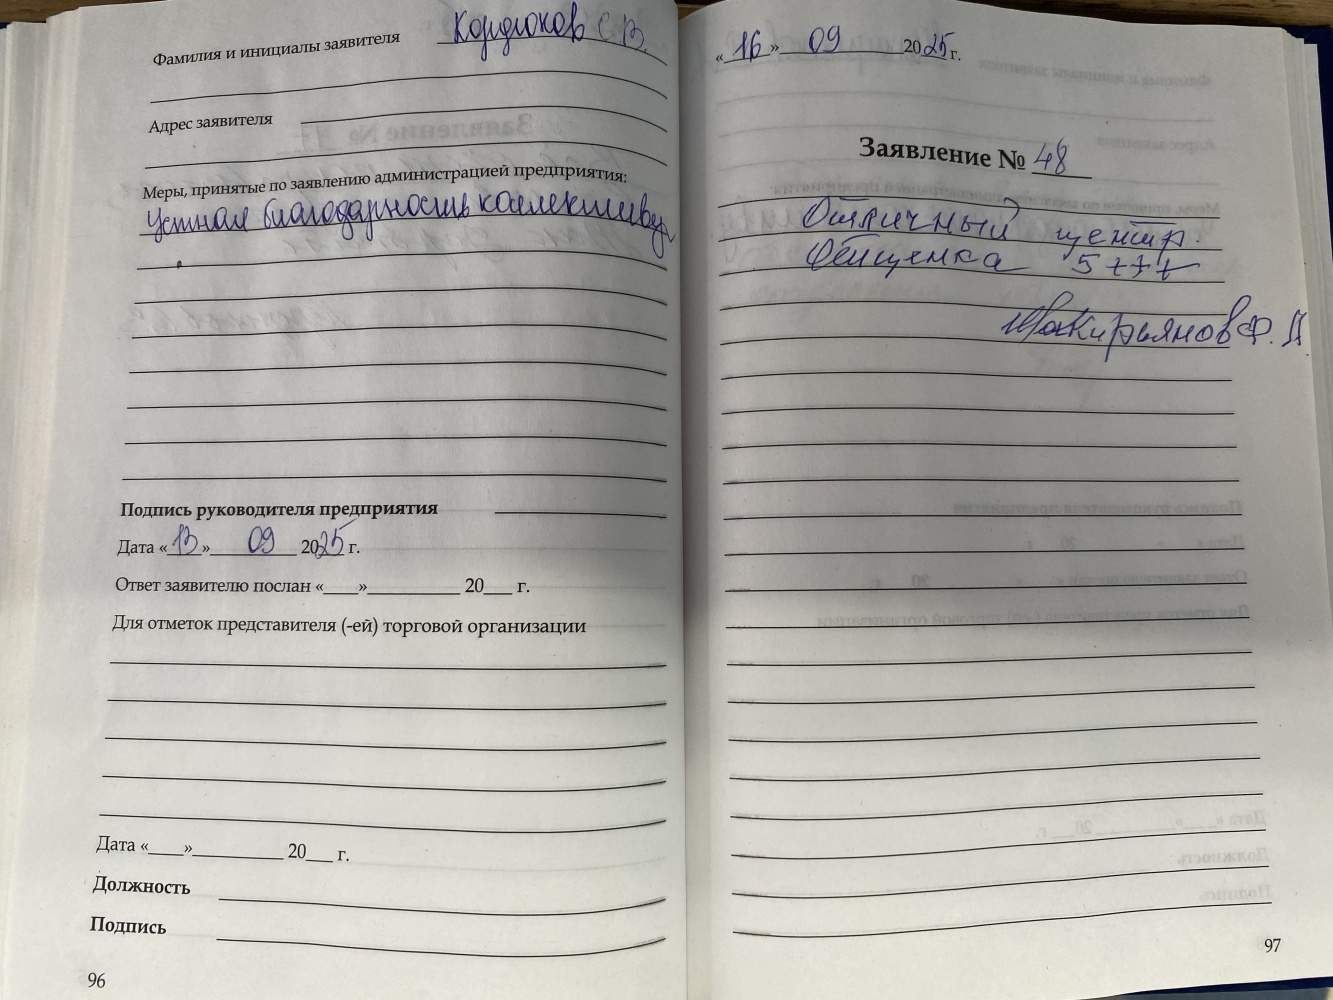 Фамилия и инициалы заявителя Кордюков С.В.
Адрес заявителя
Меры, принятые по заявлению администрацией предприятия:
Устная благодарность коллективу
Подпись руководителя предприятия
Дата «13» 09 2025 г.
Ответ заявителю послан «____»__________ 20___ г.
Для отметок представителя (-ей) торговой организации
Дата «____»__________ 20___ г.
Должность
Подпись
96
«16» 09 2025 г.
Заявление № 48
Отличный центр.
Оценка 5+++
Ф.
97